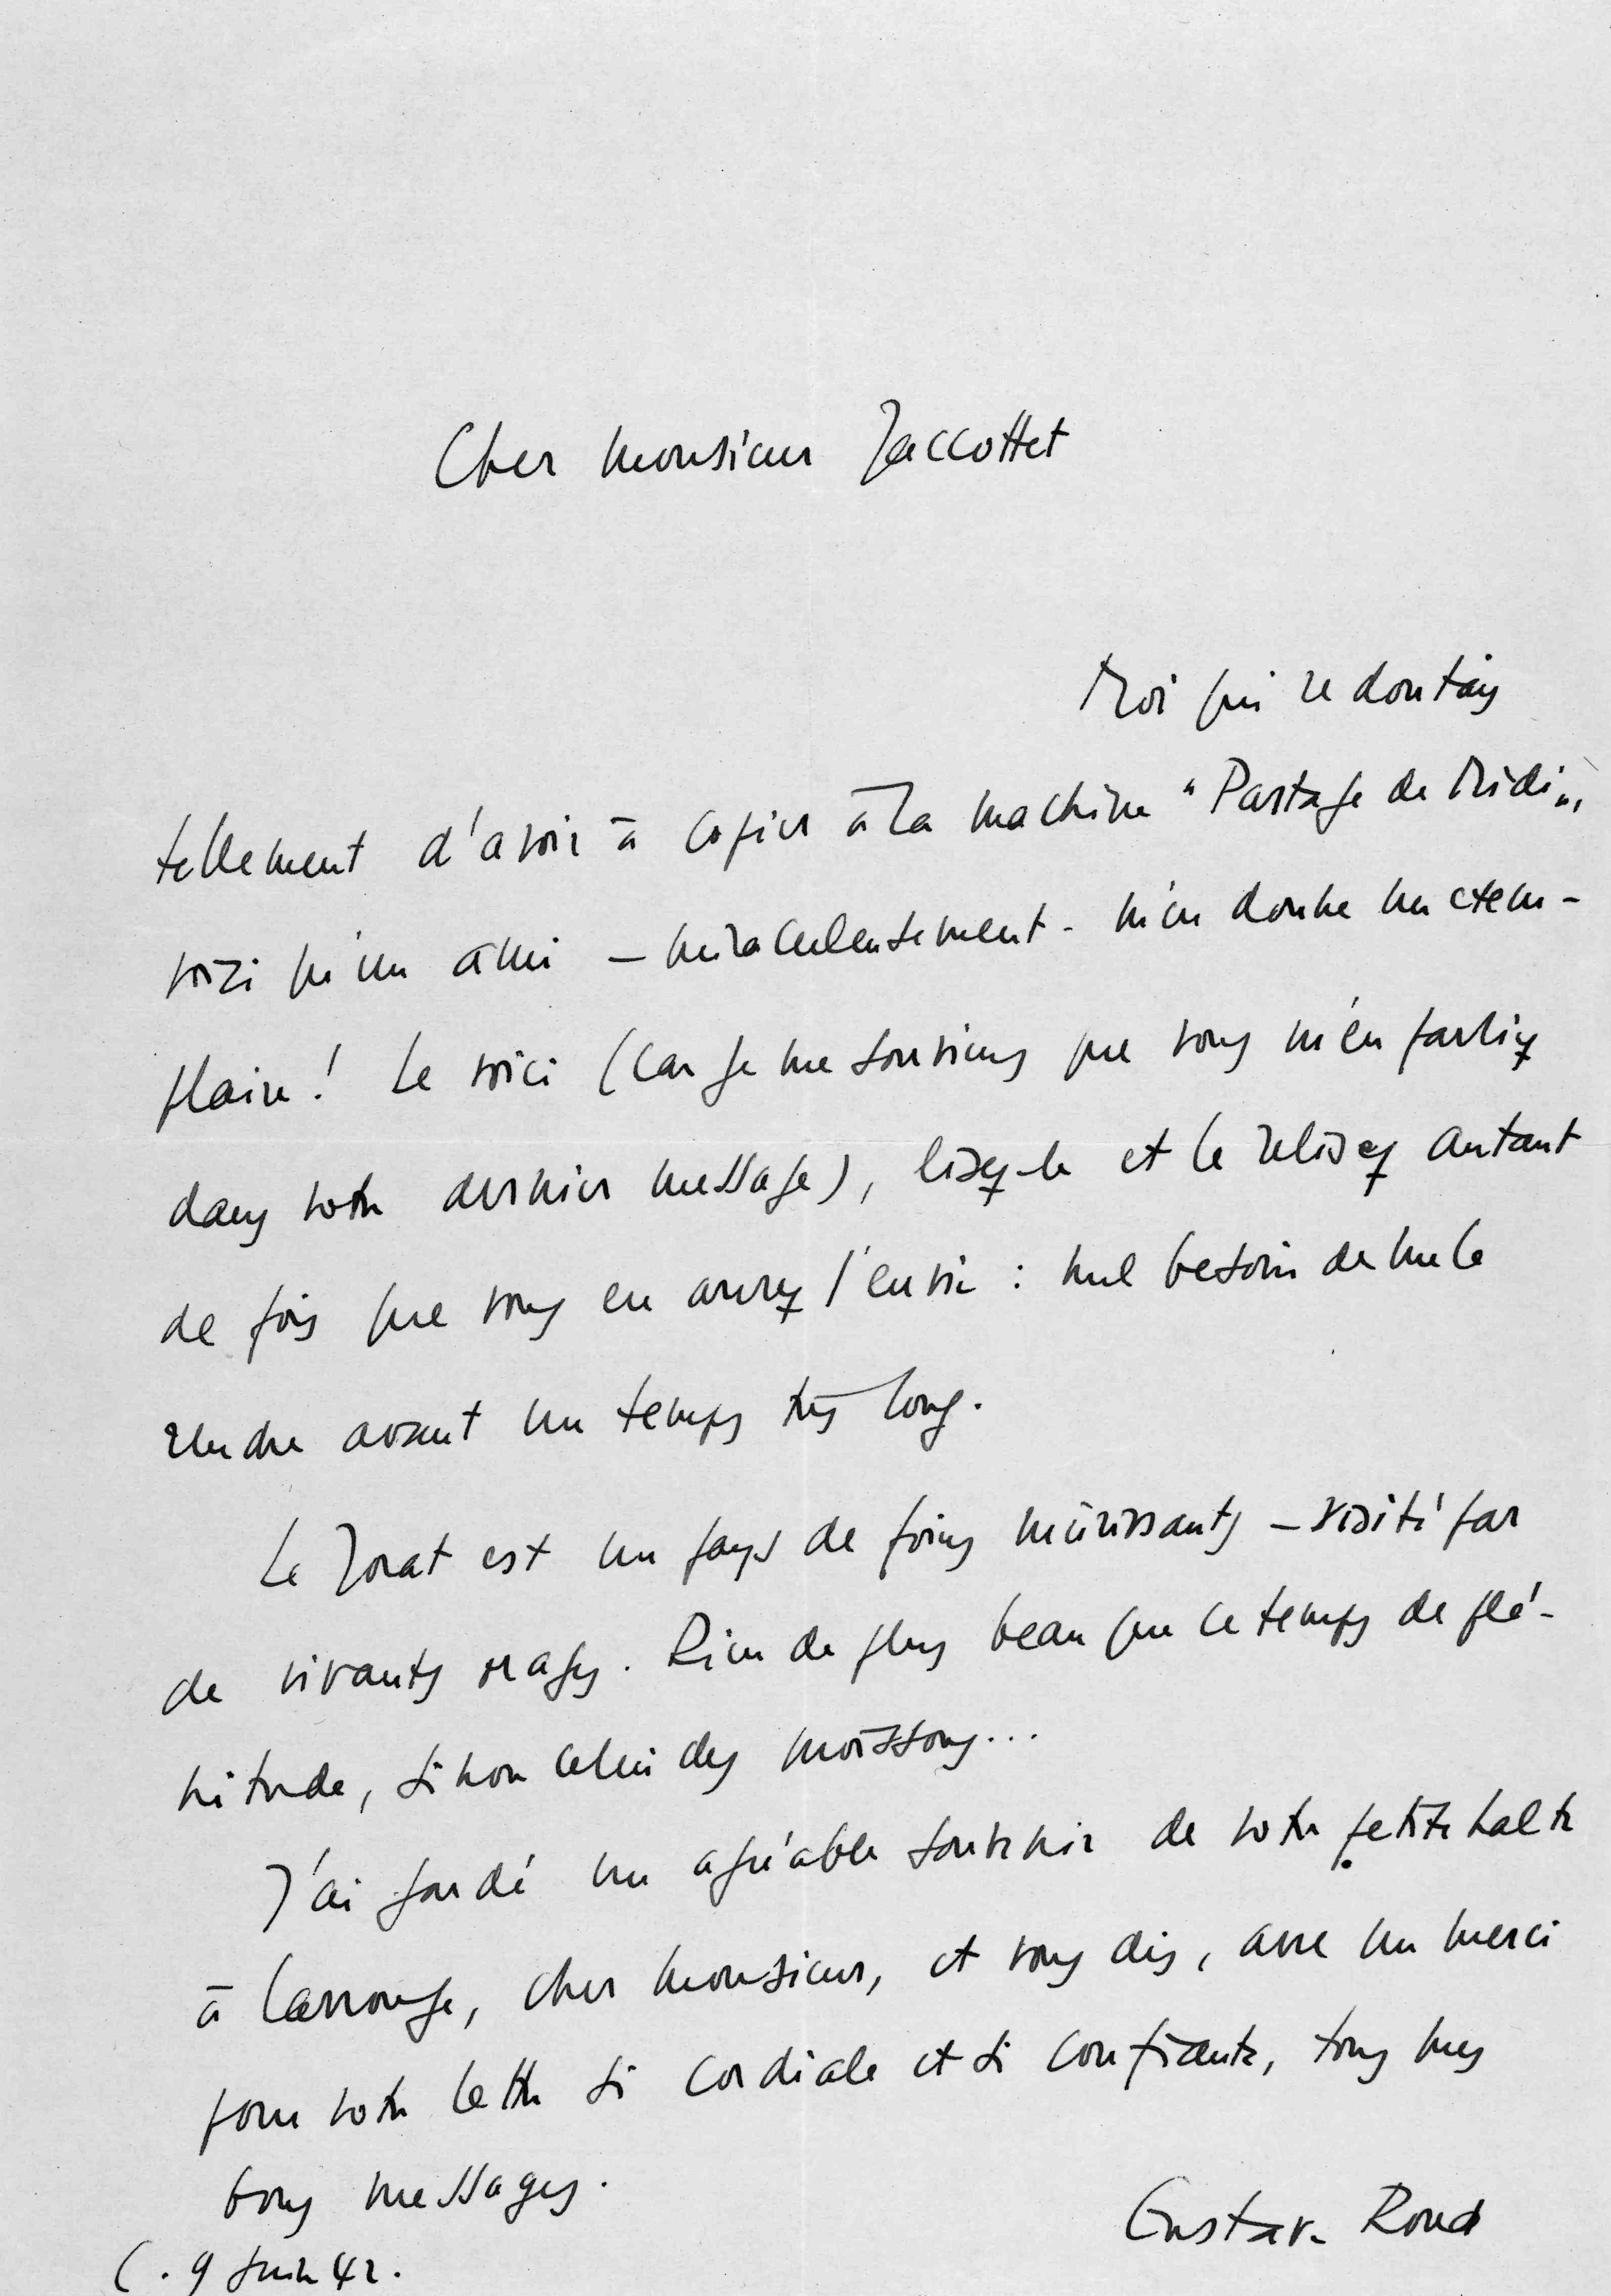 Cher Monsieur Jaccottet
Moi qui redoutais
tellement d'avoir à copier à la machine "Partage de Midi",
voici qu'un ami – miraculeusement – m'en donne un exem-
plaire! Le voici (car je me souviens que vous m'en parliez
dans votre dernier message), lisez-le et le relisez autant
de fois que vous en aurez l'envie : nul besoin de me le
rendre avant un temps très long.
Le Jorat est un pays de foins mûrissants – visité par
de vivants orages. Rien de plus beau que ce temps de plé-
nitude, sinon celui des moissons...
J'ai gardé un agréable souvenir de votre petite halte
à Carrouge, cher Monsieur, et vous dis, avec un merci
pour votre lettre si cordiale et si confiante, tous mes
bons messages.
Gustave Roud
C. 9 juin 42.